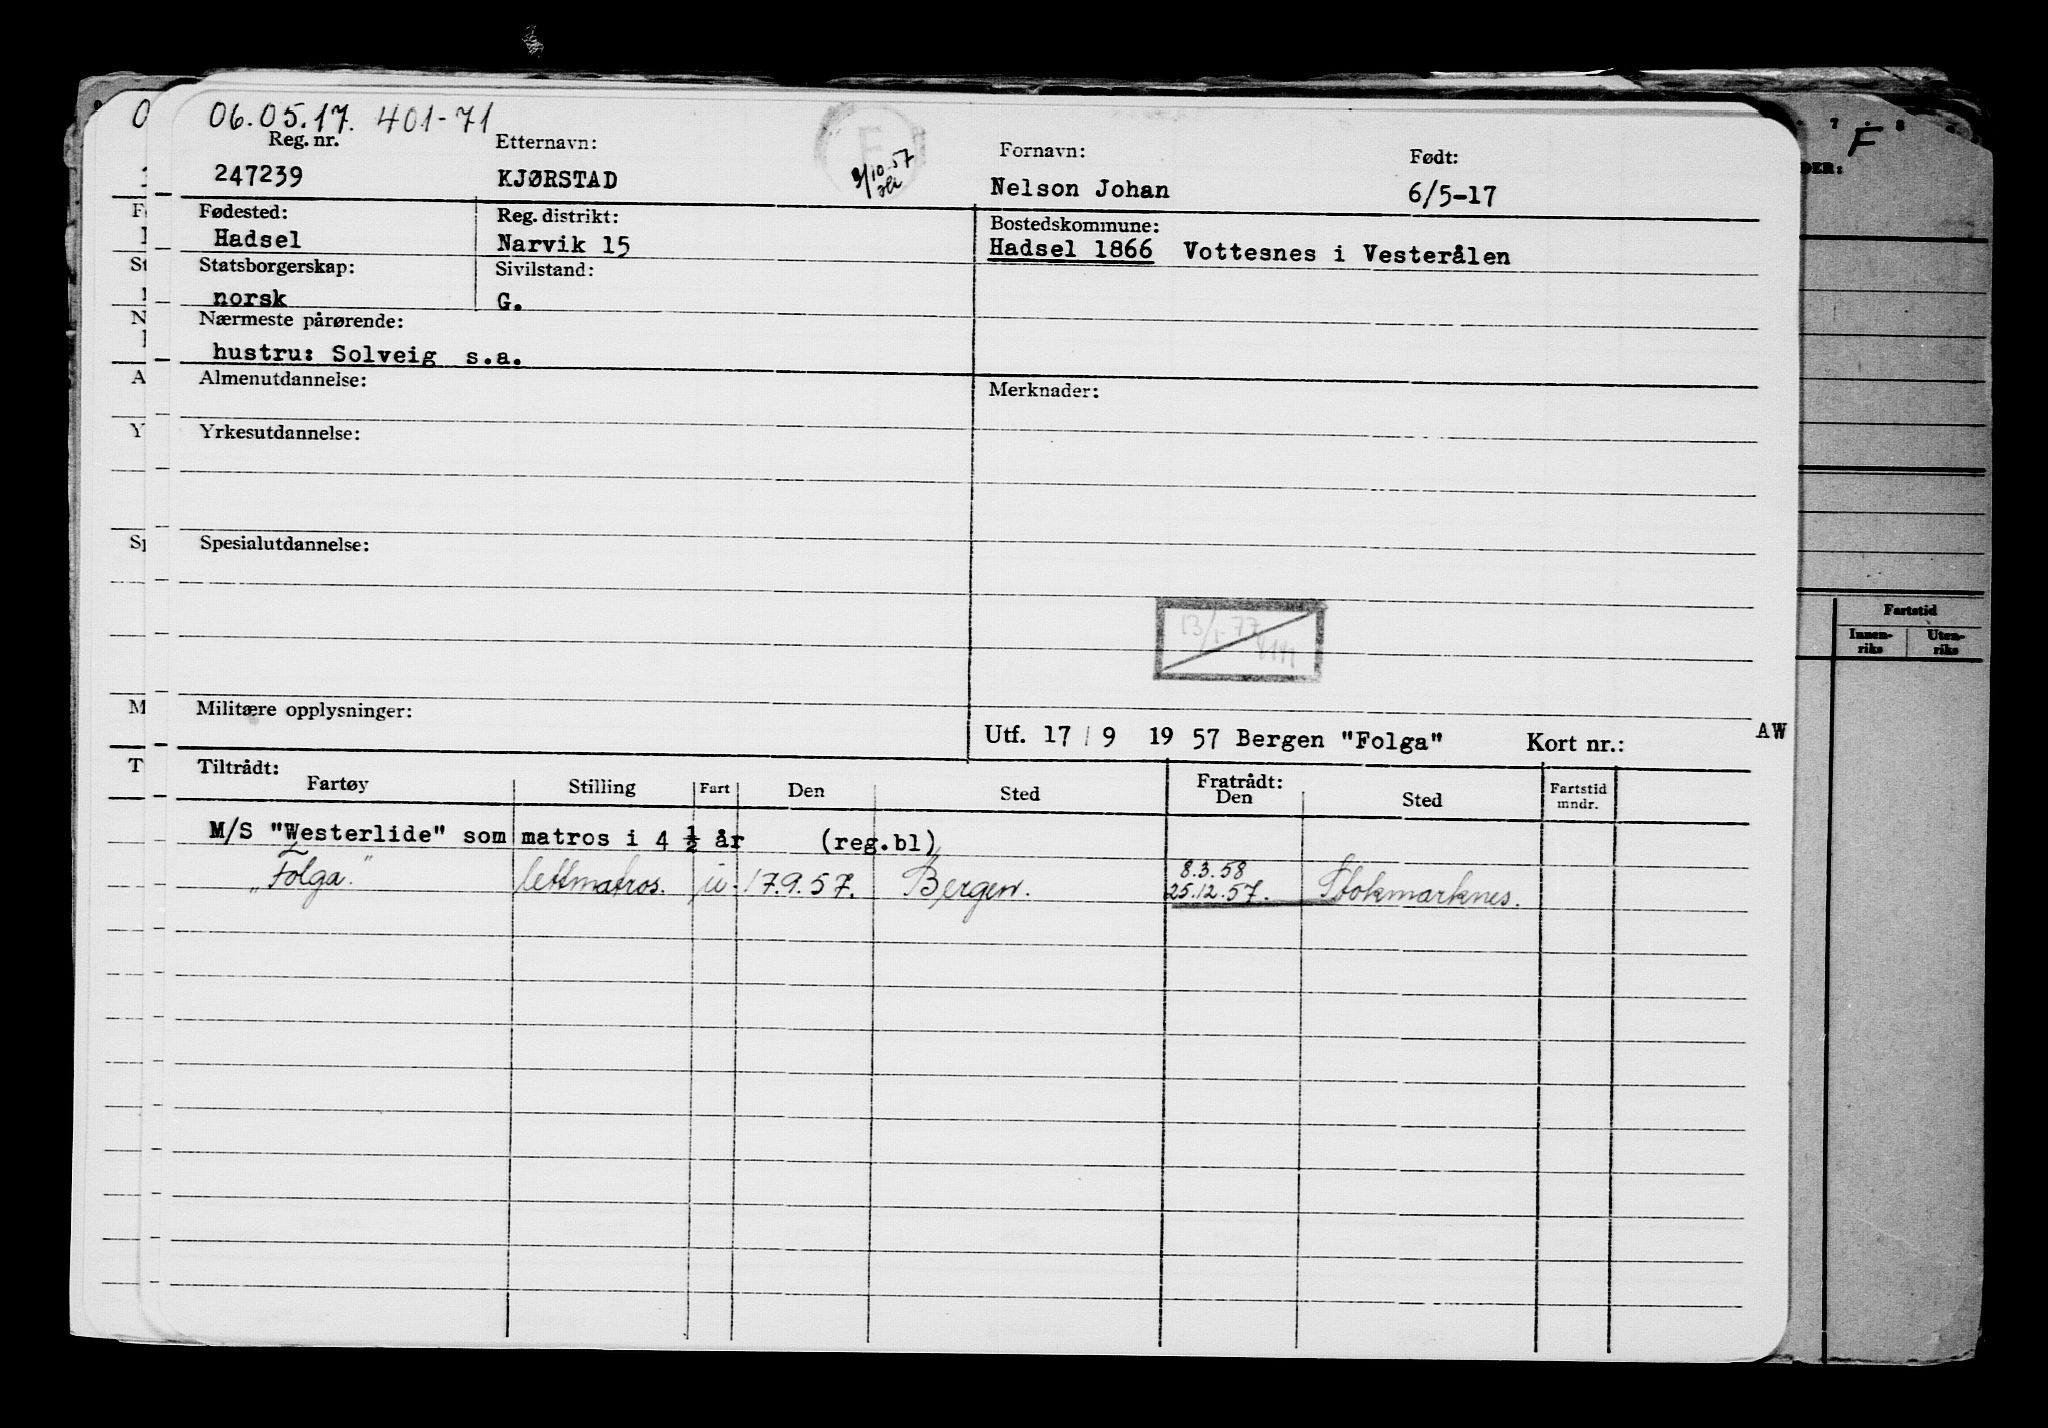 06.05.17. 401-71
Reg. nr. Etternavn: Fornavn: Født:
247239 KJØRSTAD 3/10.57 Nelson Johan 6/5-17
Fødested: Reg. distrikt: Bostedskommune:
Hadsel Narvik 15 Hadsel 1866 Vottesnes i Vesterålen
Statsborgerskap: Sivilstand:
norsk G.
Nærmeste pårørende:
hustru: Solveig s.a.
Almenutdannelse: Merknader:
Yrkesutdannelse:
Spesialutdannelse:
13/1-77
Militære opplysninger:
Utf. 17/9 19 57 Bergen "Folga" Kort nr.: AW
Tiltrådt: Fratrådt:
Fartøy Stilling Fart Den Sted Den Sted Fartstid mndr.
M/S "Westerlide" som matros i 4 ½ år (reg.bl)
8.3.58
"Folga" lettmatros. u. 17.9.57. Bergen. 25.12.57. Stokmarknes.
7 8
F
DER:
Fartstid
Innen-riks Uten-riks